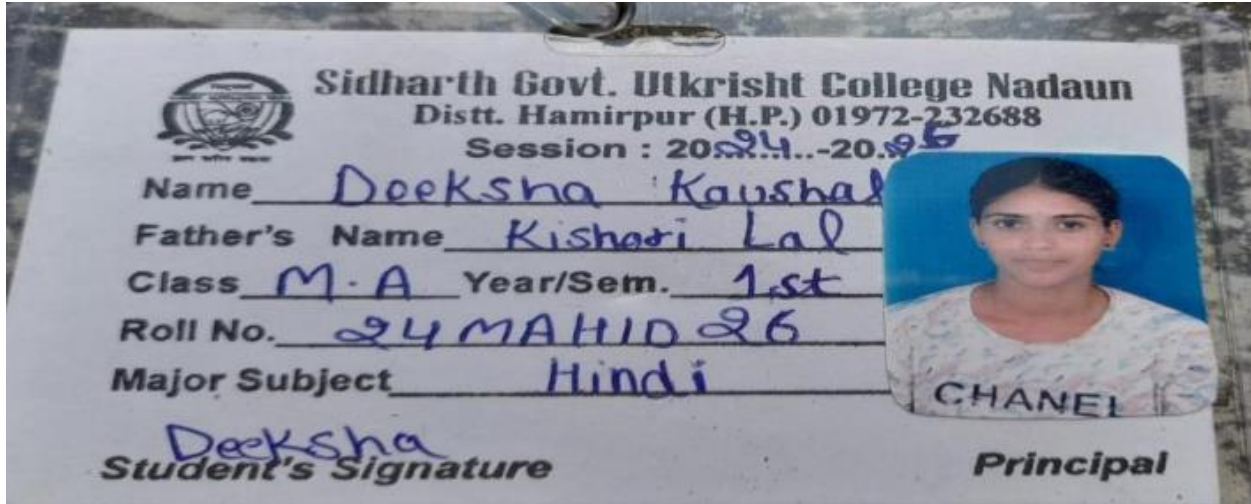 Sidharth Govt. Utkrisht College Nadaun
Distt. Hamirpur (H.P.) 01972-232688
Session : 2024-2025
Name Deeksha Kaushal
Father's Name Kishori Lal
Class M.A Year/Sem. 1st
Roll No. 24MAHID26
Major Subject Hindi
CHANEL
Deeksha
Student's Signature Principal